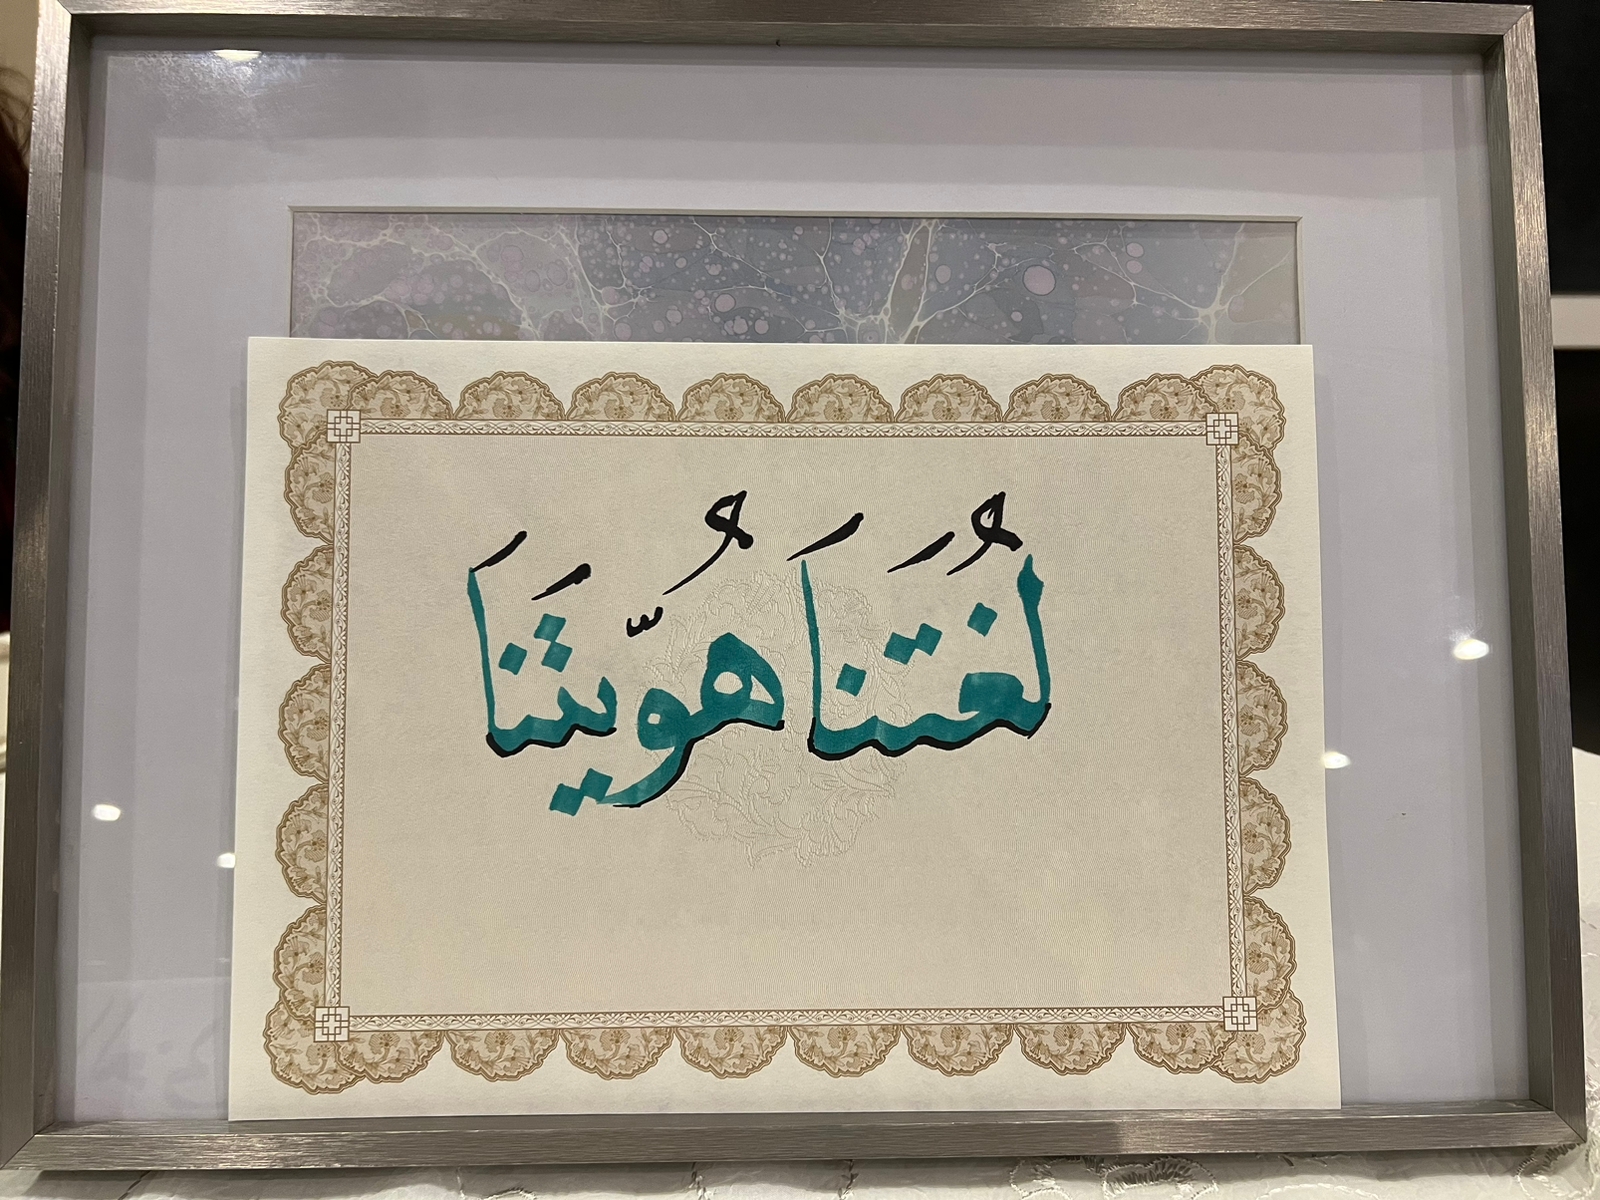 لُغَتنَا هُوّيتَنَا